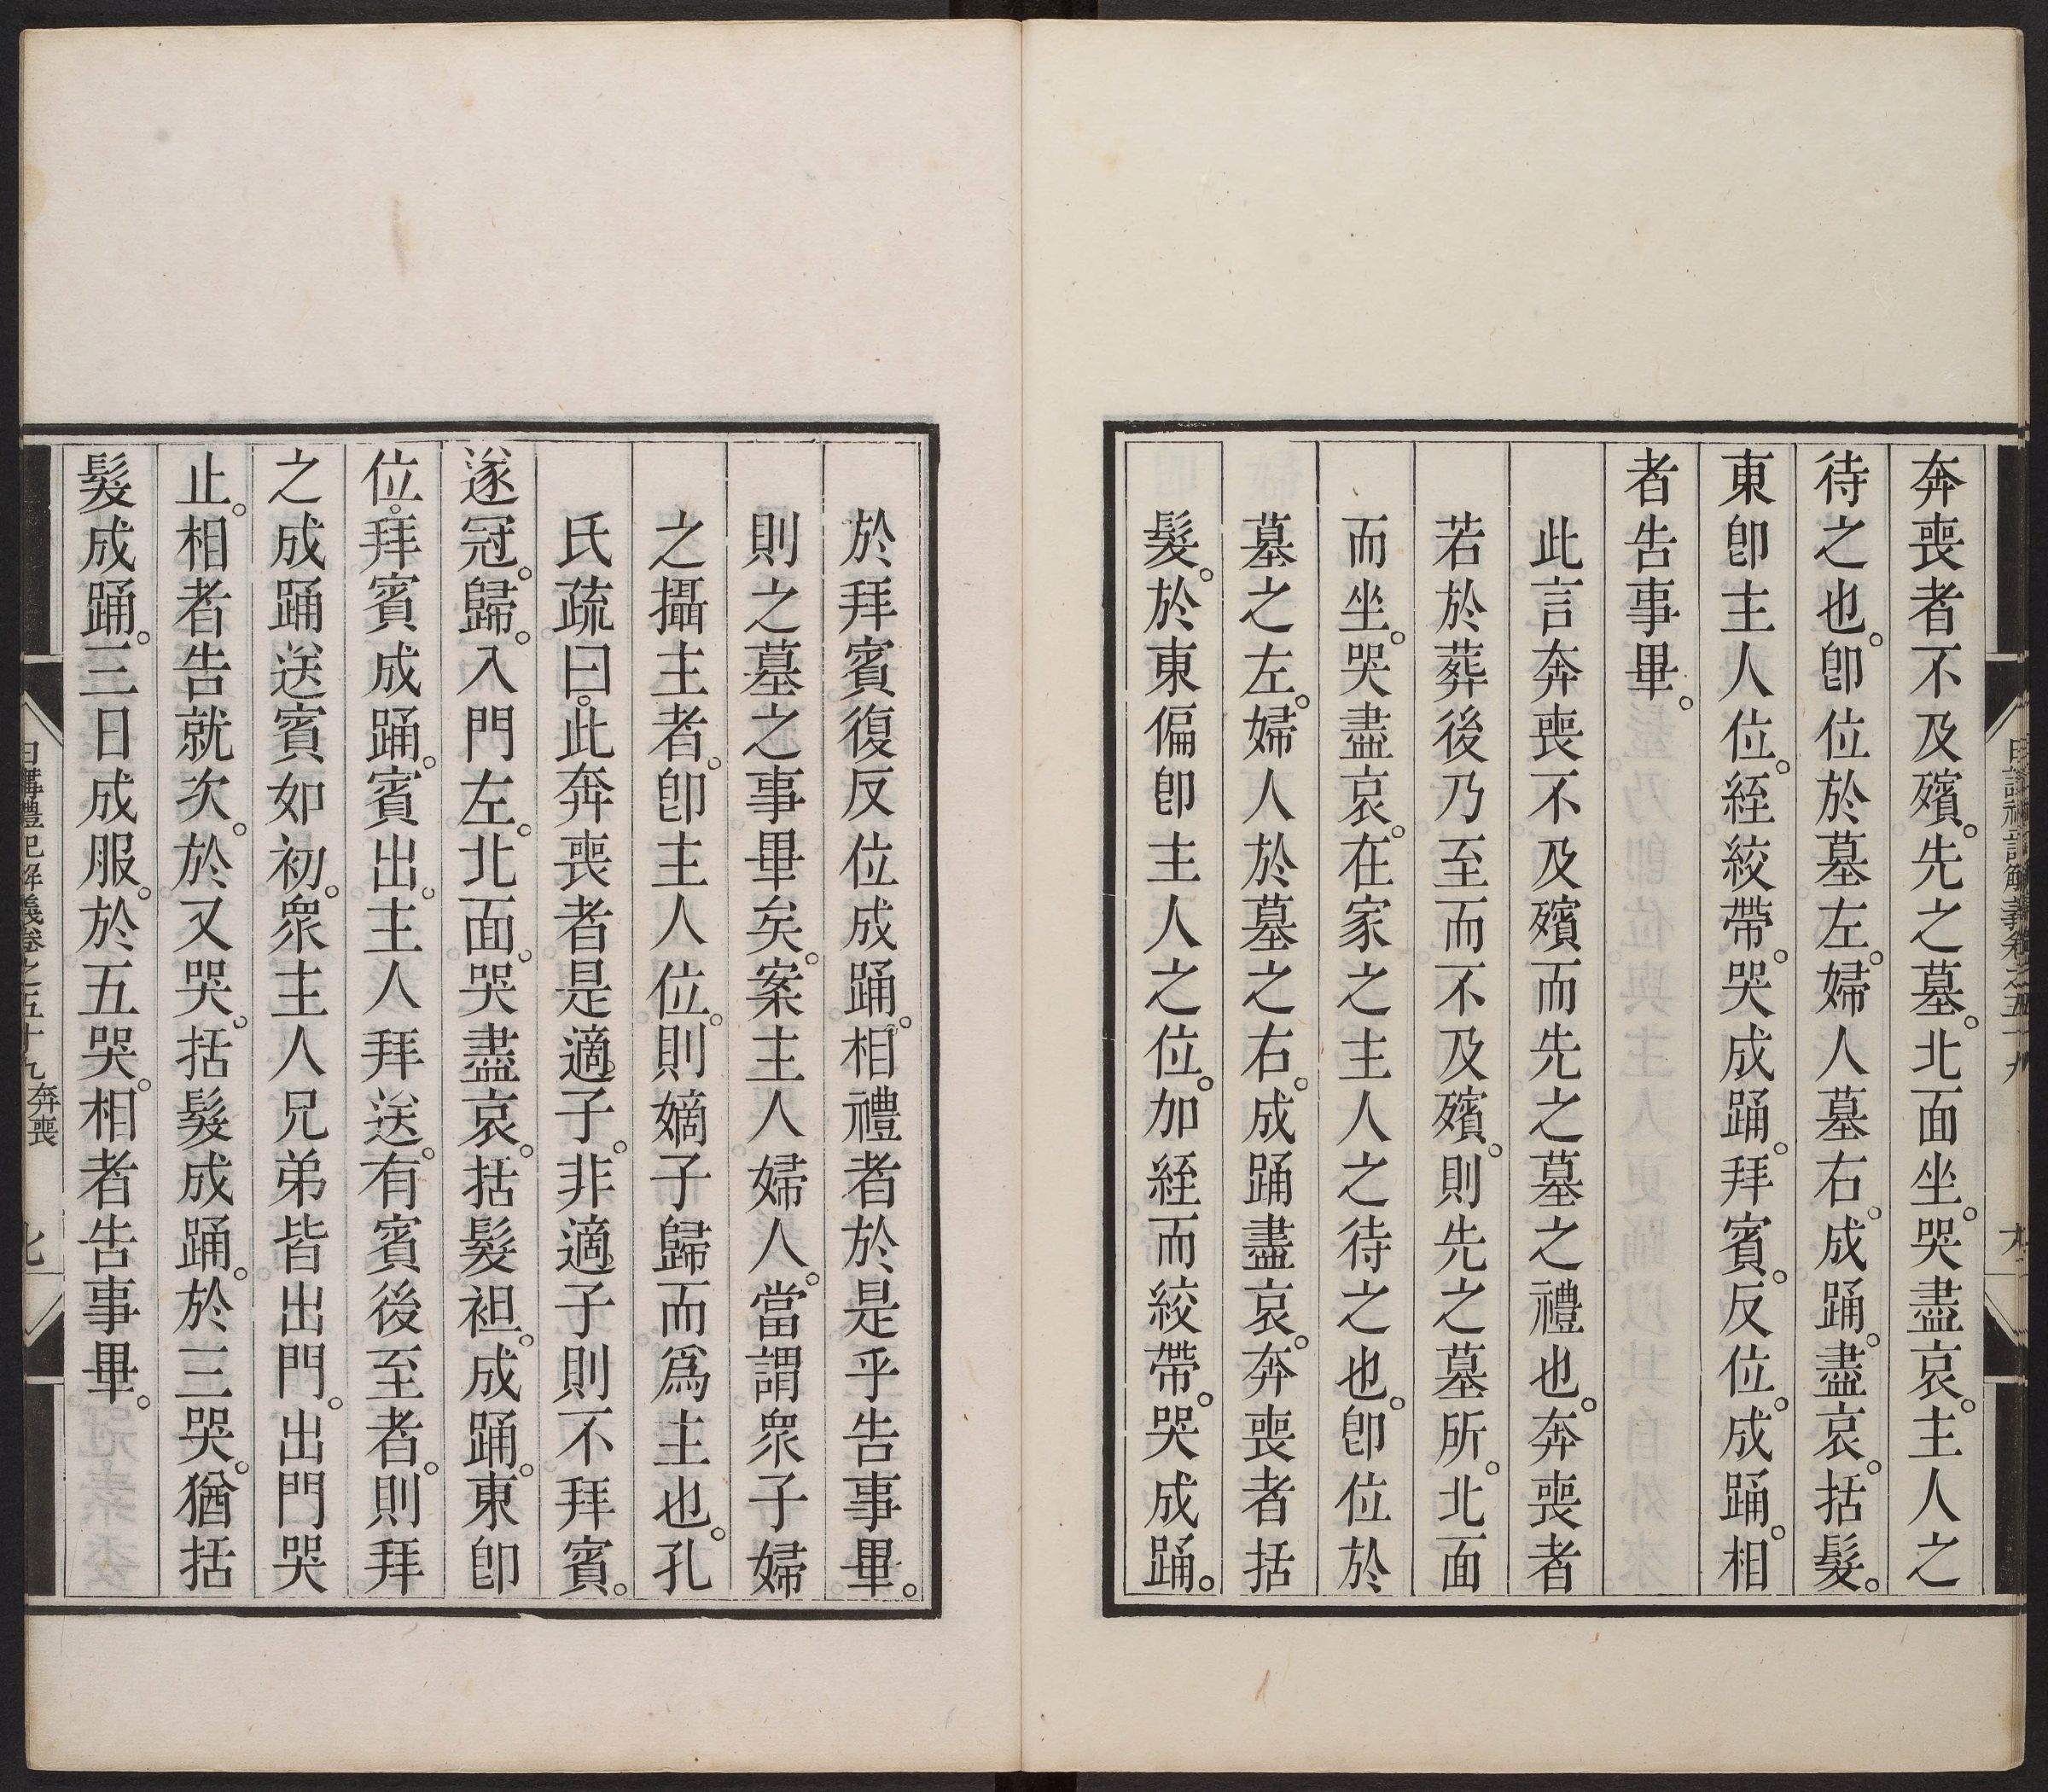 奔喪者不及殯。先之墓。北面坐。哭盡哀。主人之
待之也。卽位於墓左。婦人墓右。成踊。盡哀。括髮。
東卽主人位。絰絞帶。哭成踊。拜賓。反位。成踊。相
者告事畢。
此言奔喪不及殯而先之墓之禮也。奔喪者
若於葬後乃至而不及殯。則先之墓所。北面
而坐。哭盡哀。在家之主人之待之也。卽位於
墓之左。婦人於墓之右。成踊盡哀。奔喪者括
髮。於東偏卽主人之位。加絰而絞帶。哭成踊。
於拜賓復反位成踊。相禮者於是乎告事畢。
則之墓之事畢矣。案主人婦人。當謂衆子婦
之攝主者。卽主人位。則嫡子歸而爲主也。孔
氏疏曰。此奔喪者是適子。非適子則不拜賓。
遂冠。歸。入門左。北面。哭盡哀。括髮袒。成踊。東卽
位。拜賓成踊。賓出。主人拜送。有賓後至者。則拜
之成踊送賓如初。衆主人兄弟皆出門。出門哭
止。相者告就次。於又哭。括髮成踊。於三哭。猶括
髮成踊。三日成服。於五哭。相者告事畢。
日講禮記解義卷之五十九 奔喪